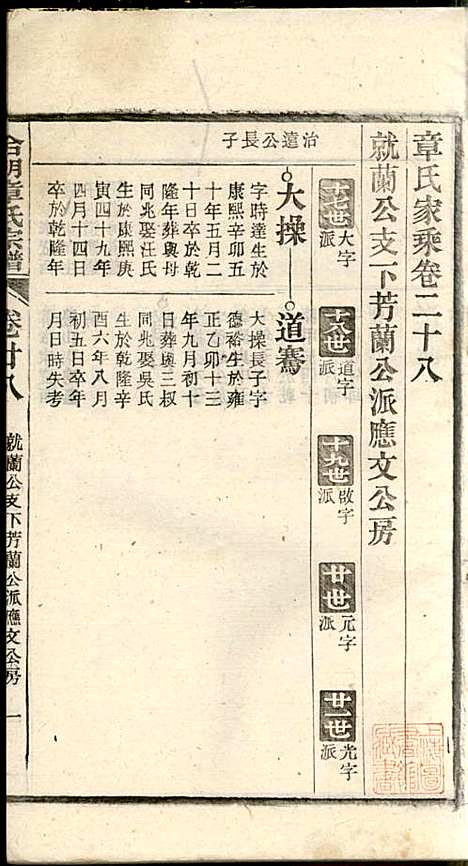 章氏家乘卷二十八
就蘭公支下芳蘭公派應文公房
十七世大字派
十八世道字派
十九世啟字派
廿世元字派
廿一世光字派
治遠公長子
大操
字時達生於
康熙辛卯五
十年五月二
十日卒於乾
隆年葬輿母
同兆娶汪氏
生於康熙庚
寅四十九年
四月十四日
卒於乾隆年
道騫
大操長子字
德裕生於雍
正乙卯十三
年九月初十
日葬輿三叔
同兆娶吳氏
生於乾隆辛
酉六年八月
初五日卒年
月日時失考
章氏宗譜
卷廿八
就蘭公支下芳蘭公派應文公房
一